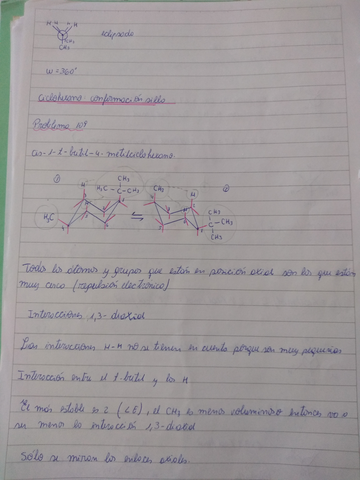 H H
CH₃
CH₃
eclipsado
ω = 360°
Ciclohexano conformación silla
Problema 10º
Cis-1-t-butil-4-metilciclohexano
① CH₃ CH₃ H ②
H H₃C-C-CH₃ CH₃
H₃C ⇌ C-CH₃
CH₃
Todos los átomos y grupos que están en posición axial son los que están
muy cerca (repulsión electrónica)
Interacciones 1,3-diaxial
Las interacciones H-H no se tienen en cuenta porque son muy pequeñas
Interacción entre el t-butil y los H
El más estable es 2 (<E), el CH₃ es menos voluminoso entonces va a
ser menor la interacción 1,3-diaxial
Sólo se miran los enlaces axiales.